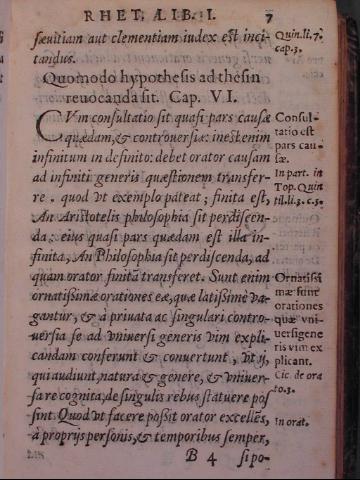 RHET. Æ LIB. I. 7
sæuitiam aut clementiam iudex est inci-
tandus.
Quomodo hypothesis ad thesin
reuocanda sit. Cap. VI.
CVm consultatio sit quasi pars causæ
quædam, & controuersiæ: inest enim
infinitum in definito: debet orator causam
ad infiniti generis quæstionem transfer-
re. quod vt exemplo pateat; finita est,
An Aristotelis philosophia sit perdiscen-
da: eius quasi pars quædam est illa in-
finita, An Philosophia sit perdiscenda, ad
quam orator finitā transferet. Sunt enim
ornatissimæ orationes eæ, quæ latissimè va-
gantur, & à priuata ac singulari contro-
uersia se ad vniuersi generis vim expli-
candam conferunt & conuertunt, vt ij,
qui audiunt, natura & genere, & vniuer-
sa re cognita, de singulis rebus statuere pos
sint. Quod vt facere possit orator excellēs,
à proprijs personis, & temporibus semper,
B 4 si po-
Quin. li. 7.
cap. 3.
Consul-
tatio est
pars cau-
sæ.
In part. in
Top. Quin
til. li. 3. c. 5.
Ornatissi
mæ sunt
orationes
quæ vni-
uersi gene
ris vim ex
plicant.
Cic. de ora
to. 3.
In orat.